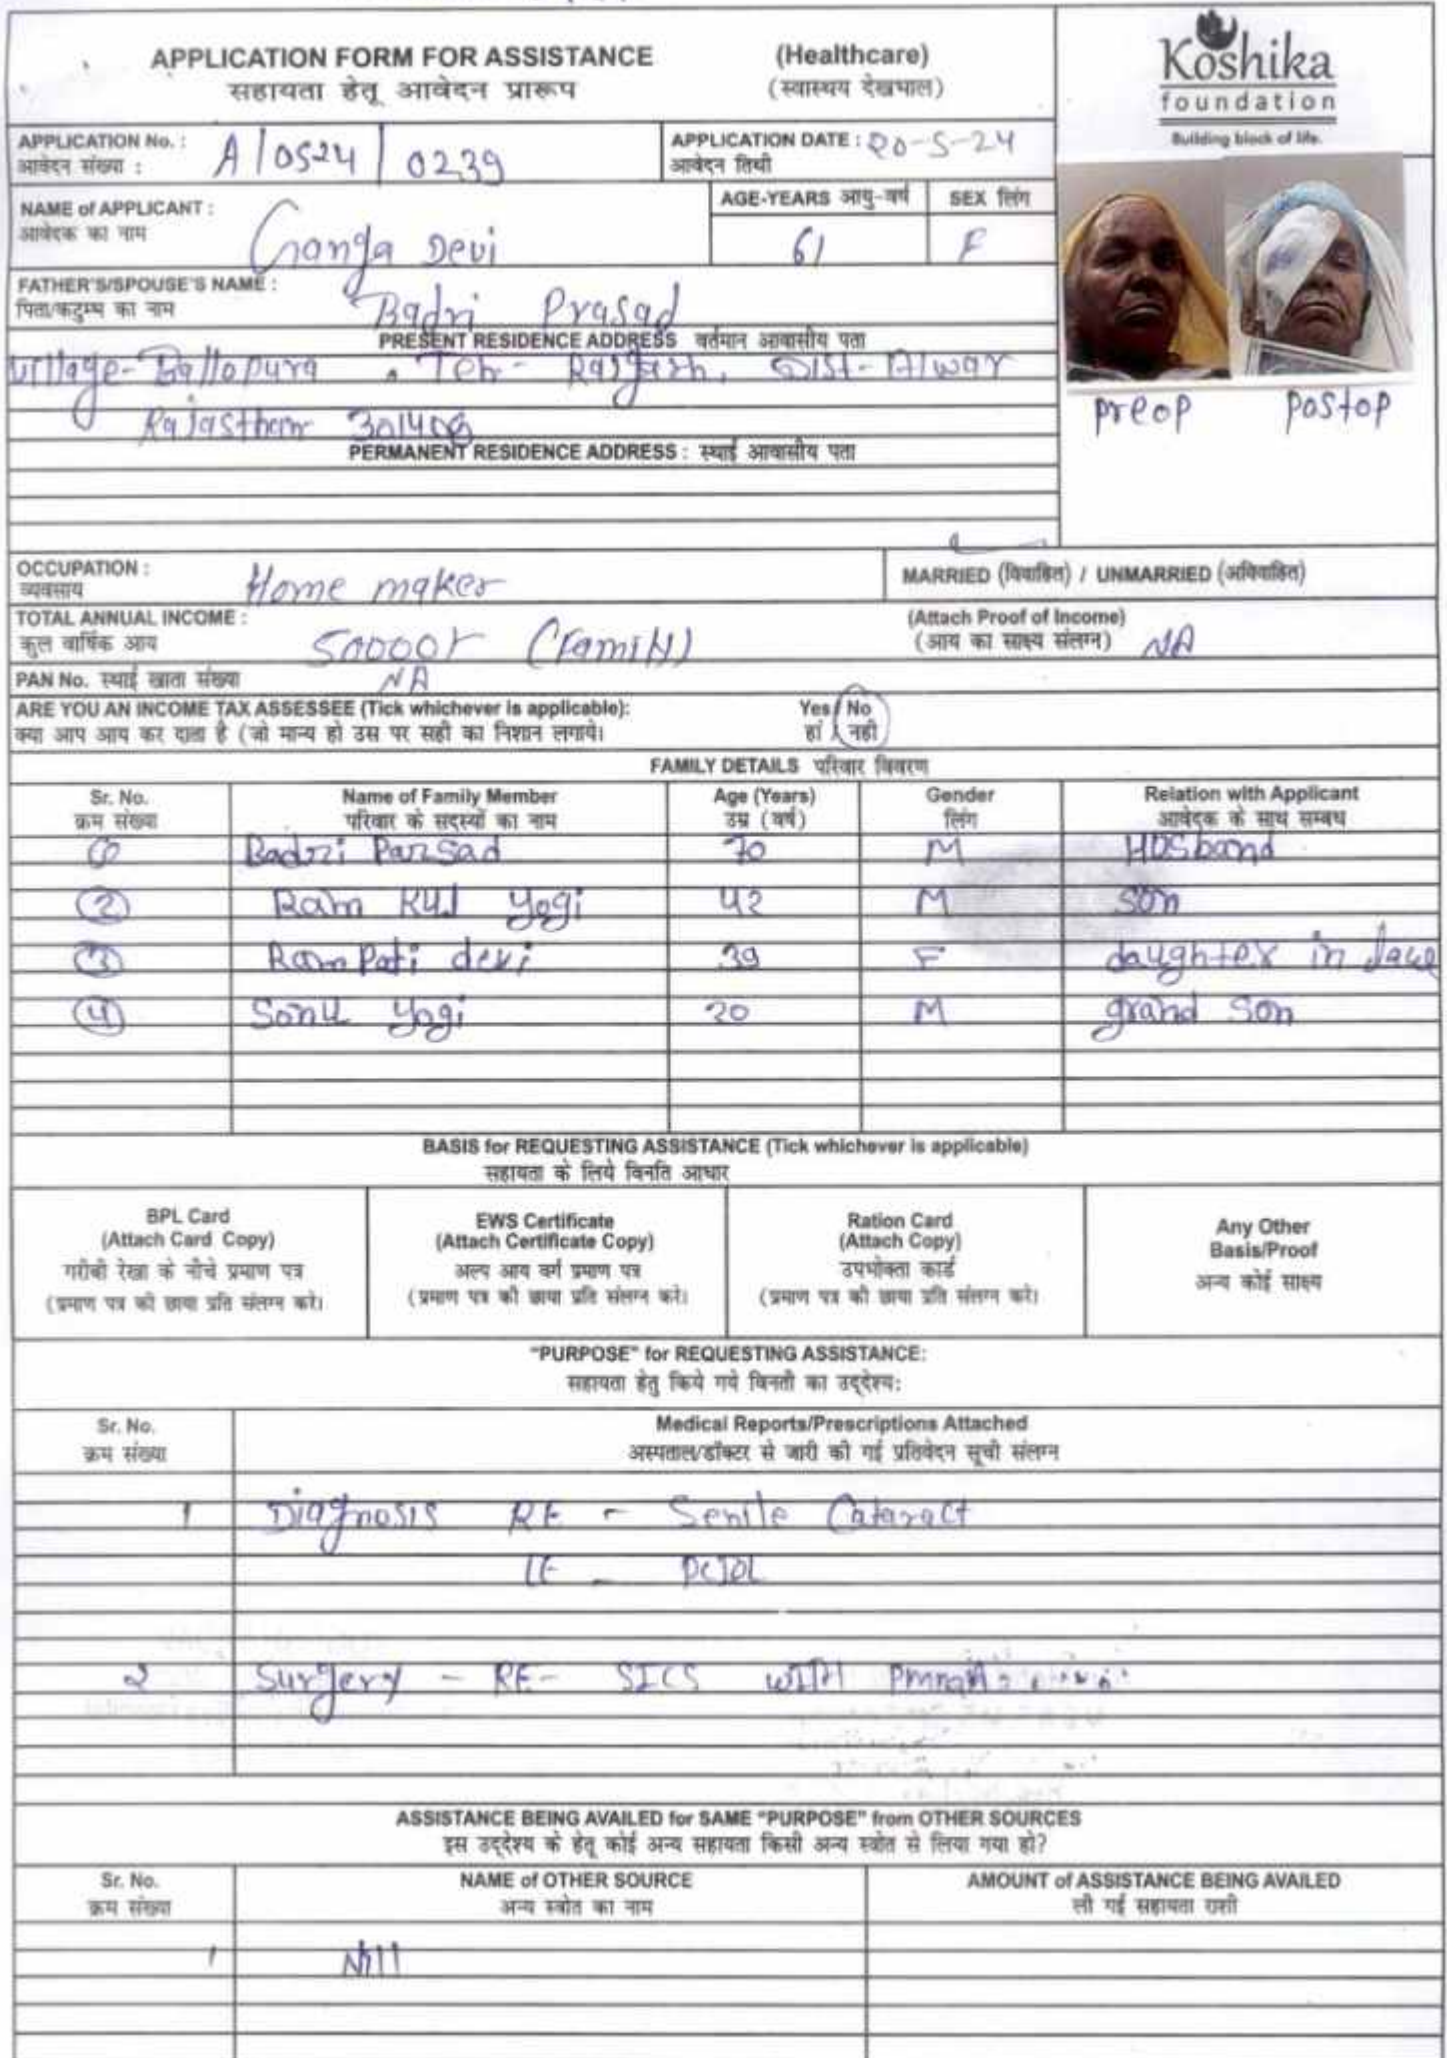 APPLICATION FORM FOR ASSISTANCE (Healthcare)
सहायता हेतू आवेदन प्रारूप (स्वास्थय देखभाल)
Koshika
foundation
Building block of life.
APPLICATION No. : A/0524/0239
आवेदन संख्या :
APPLICATION DATE : 20-5-24
आवेदन तिथी
NAME of APPLICANT : Ganga Devi
आवेदक का नाम
AGE-YEARS आयु-वर्ष SEX लिंग
61 F
FATHER'S/SPOUSE'S NAME : Badri Prasad
पिता/कटुम्ब का नाम
PRESENT RESIDENCE ADDRESS वर्तमान आवासीय पता
Village- Ballopura, Teh- Rajgarh, Dist- Alwar
Rajasthan 301408
preop postop
PERMANENT RESIDENCE ADDRESS : स्थाई आवासीय पता
OCCUPATION : Home maker
व्यवसाय
MARRIED (विवाहित) / UNMARRIED (अविवाहित)
TOTAL ANNUAL INCOME : 50000/ (Family)
कुल वार्षिक आय
(Attach Proof of Income)
(आय का साक्ष्य संलग्न) NA
PAN No. स्थाई खाता संख्या NA
ARE YOU AN INCOME TAX ASSESSEE (Tick whichever is applicable): Yes / No
क्या आप आय कर दाता है (जो मान्य हो उस पर सही का निशान लगाये। हां / नही
FAMILY DETAILS परिवार विवरण
Sr. No. Name of Family Member Age (Years) Gender Relation with Applicant
क्रम संख्या परिवार के सदस्यों का नाम उम्र (वर्ष) लिंग आवेदक के साथ सम्बध
1 Badri Parsad 70 M Husband
2 Ram Yogi 42 M son
3 Ram Pati devi 39 F daughter in lawe
4 Sonu Yogi 20 M grand son
BASIS for REQUESTING ASSISTANCE (Tick whichever is applicable)
सहायता के लिये विनति आधार
BPL Card
(Attach Card Copy)
गरीबी रेखा के नीचे प्रमाण पत्र
(प्रमाण पत्र की छाया प्रति संलग्न करे।
EWS Certificate
(Attach Certificate Copy)
अल्प आय वर्ग प्रमाण पत्र
(प्रमाण पत्र की छाया प्रति संलग्न करे।
Ration Card
(Attach Copy)
उपभोक्ता कार्ड
(प्रमाण पत्र की छाया प्रति संलग्न करे।
Any Other
Basis/Proof
अन्य कोई साक्ष्य
"PURPOSE" for REQUESTING ASSISTANCE:
सहायता हेतु किये गये विनती का उद्देश्य:
Sr. No. Medical Reports/Prescriptions Attached
क्रम संख्या अस्पताल/डॉक्टर से जारी की गई प्रतिवेदन सूची संलग्न
1 Diagnosis RE - Senile Cataract
LE - PCIOL
2 Surgery - RE - SICS with PMMA
ASSISTANCE BEING AVAILED for SAME "PURPOSE" from OTHER SOURCES
इस उद्देश्य के हेतू कोई अन्य सहायता किसी अन्य स्त्रोत से लिया गया हो?
Sr. No. NAME of OTHER SOURCE AMOUNT of ASSISTANCE BEING AVAILED
क्रम संख्या अन्य स्त्रोत का नाम ली गई सहायता राशी
1 Nill